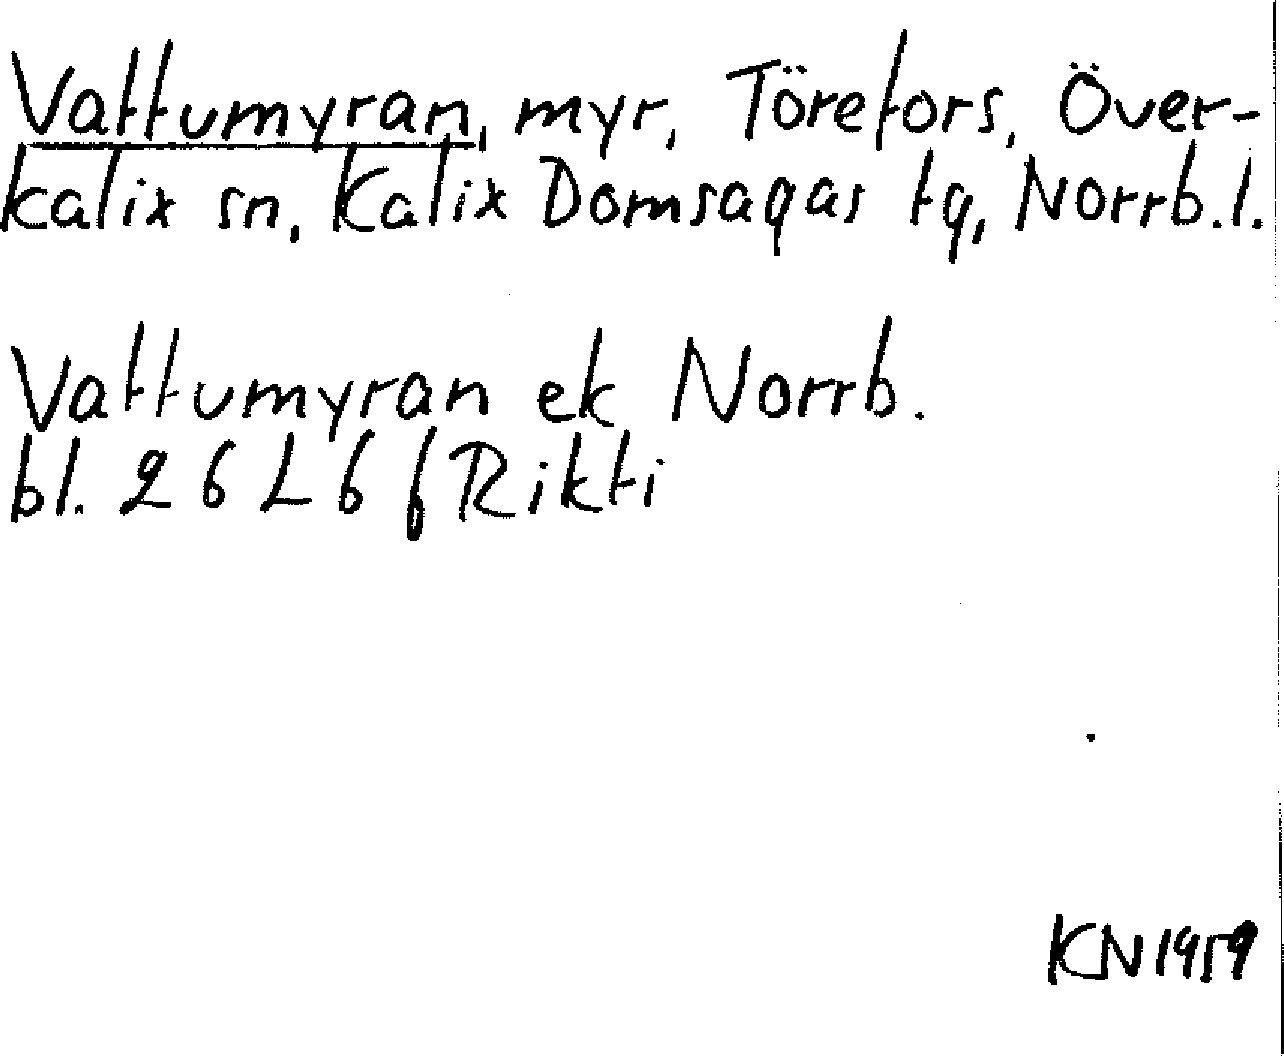 Vattumyran, myr, Törefors, Över-
kalix sn, Kalix Domsagas tg, Norrb.l.
Vattumyran ek Norrb.
bl. 26 L 6 f Rikti
KN 1959